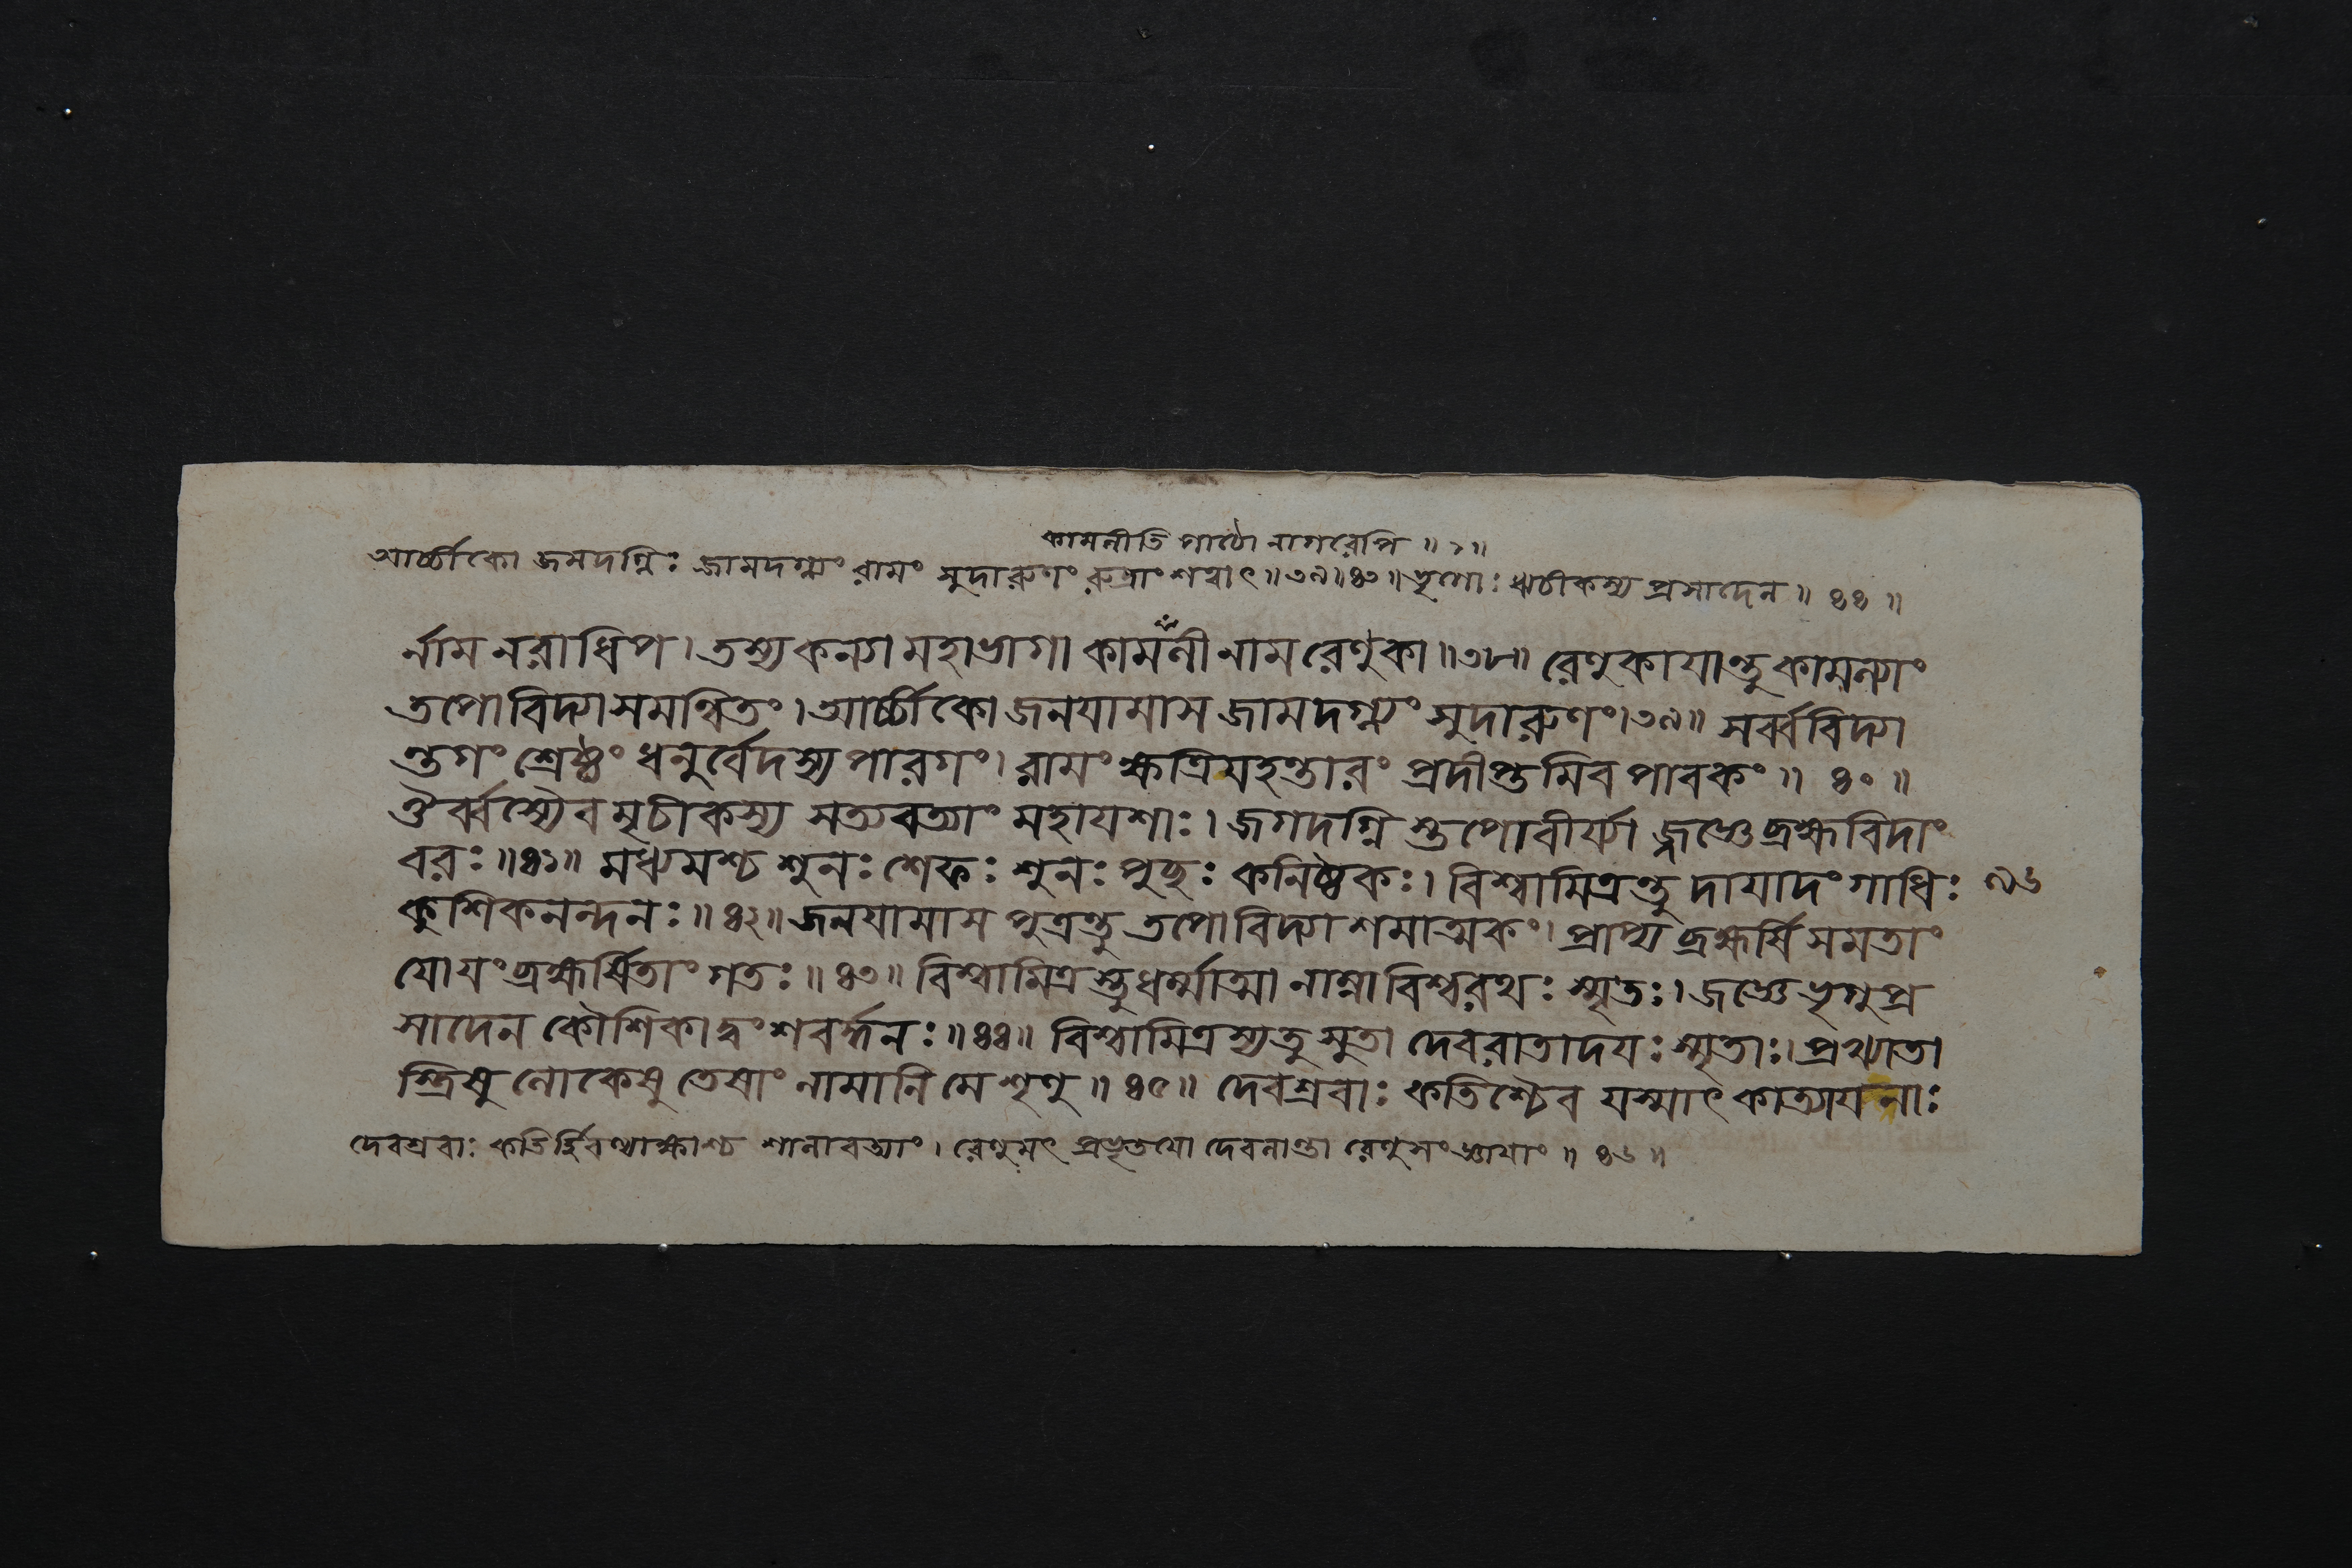 কামনীতি পাঠো নাগরেপি ॥ ১॥
আর্চ্চীকো জমদগ্নিঃ জামদগ্ন্যং রামং সুদারুণং রুদ্রাংশত্বাৎ ॥ ৩৯॥ ৪৩ ॥ ভৃগোঃ ঋচীকস্য প্রসাদেন ॥ ৪৪ ॥
র্নাম নরাধিপ। তস্য কন্যা মহাভাগা কামনী নাম রেণুকা ॥৩৮॥ রেণুকাযান্তু কামন্যাং
তপোবিদ্যাসমন্বিতং। আর্চ্চীকো জনযামাস জামদগ্ন্যং সুদারুণং।৩৯॥ সর্ব্ববিদ্যা
ন্তগং শ্রেষ্ঠং ধনুর্বেদস্য পারগং। রামং ক্ষত্রিযহন্তারং প্রদীপ্তমিব পাবকং ॥ ৪০ ॥
ঔর্ব্বস্যৈবমৃচীকস্য সত্যবত্যাং মহাযশাঃ। জগদগ্নিস্তপোবীর্য্যাজ্জজ্ঞে ব্রহ্মবিদাং
বরঃ ॥৪১॥ মধ্যমশ্চ শুনঃশেফঃ শুনঃপুচ্ছঃ কনিষ্ঠকঃ। বিশ্বামিত্রন্তু দাযাদং গাধিঃ ৯৬
কুশিকনন্দনঃ ॥ ৪২॥ জনযামাস পুত্রন্তু তপোবিদ্যাশমাত্মকং। প্রাপ্য ব্রহ্মর্ষিসমতাং
যোযং ব্রহ্মর্ষিতাং গতঃ ॥ ৪৩॥ বিশ্বামিত্রস্তু ধর্ম্মাত্মা নাম্না বিশ্বরথঃ স্মৃতঃ। জজ্ঞে ভৃগুপ্র
সাদেন কৌশিকাদ্বংশবর্দ্ধনঃ ॥৪৪॥ বিশ্বামিত্রস্য তু সুতা দেবরাতাদযঃ স্মৃতাঃ। প্রখ্যাতা
স্ত্রিষু লোকেষু তেষাং নামানি মে শৃণু ॥ ৪৫॥ দেবশ্রবাঃ কতিশ্চৈব যস্মাৎ কাত্যাযনাঃ
দেবশ্রবাঃ কতির্হিরণ্যাক্ষাশ্চ শালাবত্যাং। রেণুমৎ প্রভৃতযো দেবলান্তা রেণুসংজ্ঞাযাং ॥ ৪৬ ॥